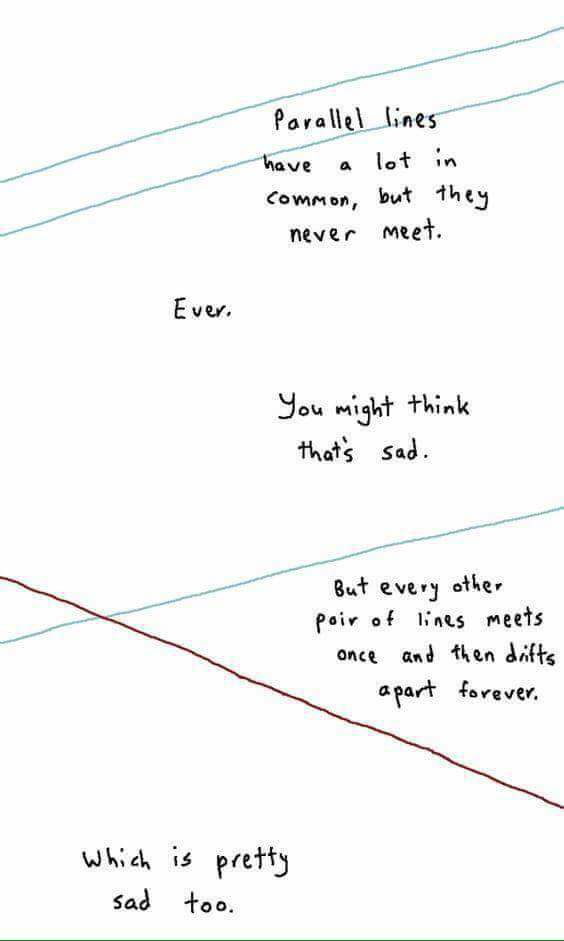 Parallel lines
have a lot in
common, but they
never meet.
Ever.
You might think
that's sad.
But every other
pair of lines meets
once and then drifts
apart forever.
Which is pretty
sad too.